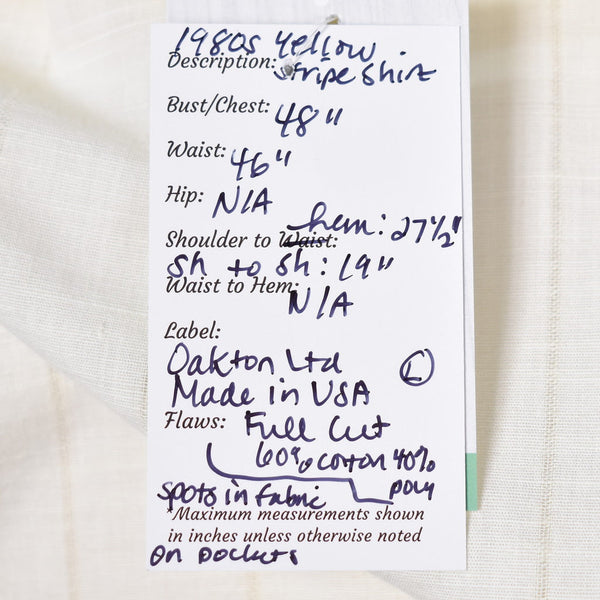 1980s Yellow
Description: Stripe Shirt
Bust/Chest: 48"
Waist: 46"
Hip: N/A
Shoulder to Waist: hem: 27 1/2"
Sh to Sh: 19"
Waist to Hem: N/A
Label:
Oakton Ltd
Made in USA Ⓛ
Flaws: Full Cut
60% cotton 40%
poly
spots in fabric
*Maximum measurements shown
in inches unless otherwise noted
on pockets